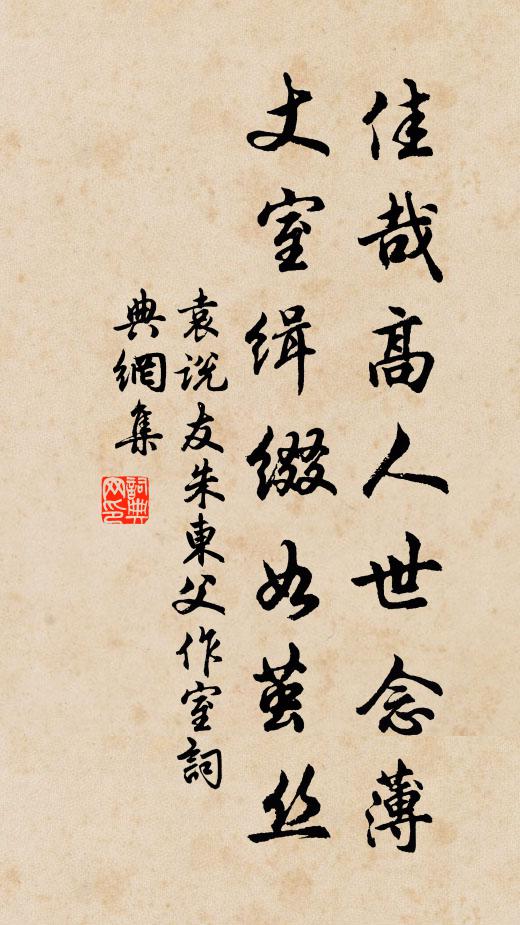 佳哉高人世念薄
丈室缉缀如茧丝
袁说友朱東父作室詞
典網集
詞典网印